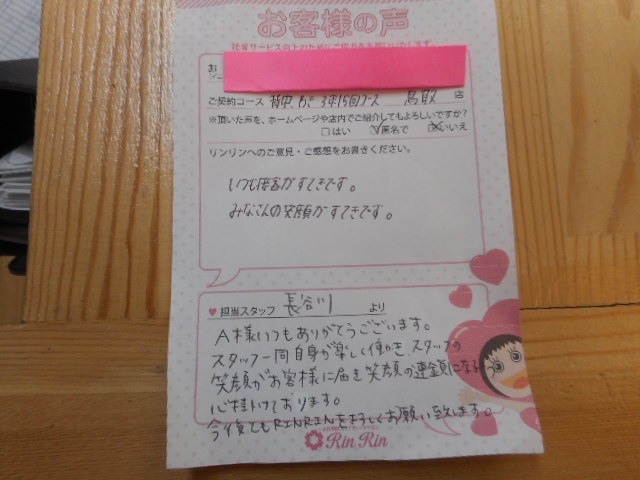 お客様の声
接客サービス向上のためにご協力をお願いいたします
お
ご契約コース 背中、わき 3年15回コース 鳥取 店
※頂いた声を、ホームページや店内でご紹介してもよろしいですか？
□はい ☑匿名で □いいえ
リンリンへのご意見・ご感想をお書きください。
いつも接客がすてきです。
みなさんの笑顔がすてきです。
♥担当スタッフ 長谷川 より
A様いつもありがとうございます。
スタッフ一同自身が楽しく働かき、スタッフの
笑顔がお客様に届き笑顔の連鎖になる
心掛けております。
今後ともRINRINをよろしくお願い致します。
Rin Rin